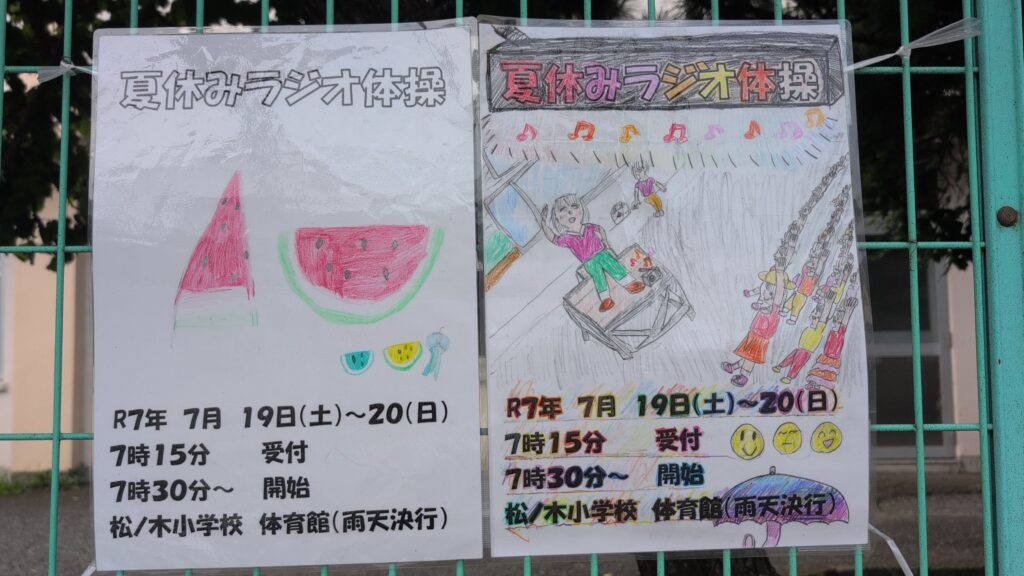 夏休みラジオ体操
R7年 7月 19日(土)～20(日)
7時15分 受付
7時30分～ 開始
松ノ木小学校 体育館(雨天決行)
夏休みラジオ体操
R7年 7月 19日(土)～20(日)
7時15分 受付
7時30分～ 開始
松ノ木小学校 体育館(雨天決行)